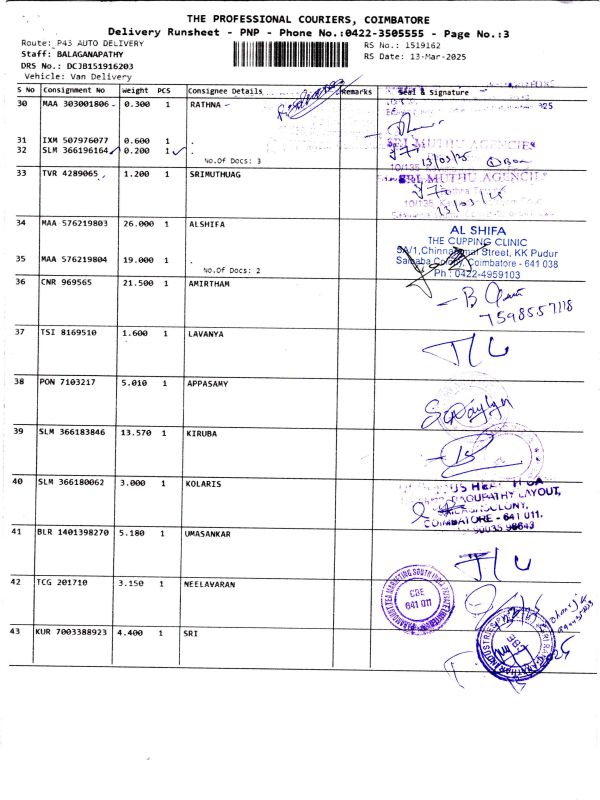 THE PROFESSIONAL COURIERS, COIMBATORE
Delivery Runsheet - PNP - Phone No.:0422-3505555 - Page No.:3
Route: P43 AUTO DELIVERY
RS No.: 1519162
Staff: BALAGANAPATHY
RS Date: 13-Mar-2025
DRS No.: DCJB151916203
Vehicle: Van Delivery
S No Consignment No Weight PCS Consignee Details Remarks Seal & Signature
30 MAA 303001806 0.300 1 RATHNA
31 IXM 507976077 0.600 1 .
32 SLM 366196164 0.200 1 .
No.Of Docs: 3
SRI MUTHU AGENCIES
13/03/25
33 TVR 4289065 1.200 1 SRIMUTHUAG
SRI MUTHU AGENCIES
13/03/25
34 MAA 576219803 26.000 1 ALSHIFA
AL SHIFA
THE CUPPING CLINIC
5A/1,Chinnammal Street, KK Pudur
Saibaba Colony, Coimbatore - 641 038
Ph : 0422-4959103
35 MAA 576219804 19.000 1 .
No.Of Docs: 2
36 CNR 969565 21.500 1 AMIRTHAM
7598557118
37 TSI 8169510 1.600 1 LAVANYA
38 PON 7103217 5.010 1 APPASAMY
39 SLM 366183846 13.570 1 KIRUBA
40 SLM 366180062 3.000 1 KOLARIS
LAYOUT,
COIMBATORE - 641 011.
41 BLR 1401398270 5.180 1 UMASANKAR
42 TCG 201710 3.150 1 NEELAVARAN
CBE
641 011
43 KUR 7003388923 4.400 1 SRI